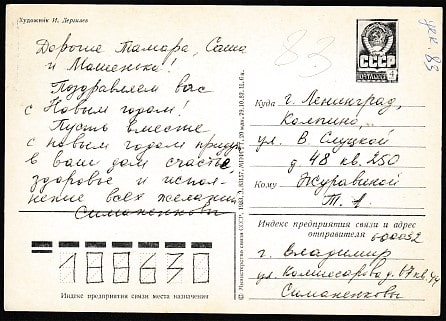 Художник И. Дергилев
дек. 83
83
Дорогие Тамара, Саша
и Машенька!
Поздравляем вас
с Новым годом!
Пусть вместе
с новым годом придут
в ваш дом счастье,
здоровье и испол-
нение всех желаний
Симаненковы
СССР
ПОЧТА
4
Куда г. Ленинград,
Колпино,
ул. В. Слуцкой
д. 48 кв. 250
Кому Журавиной
Т. А.
Индекс предприятия связи и адрес
отправителя 600032
г. Владимир
ул. Комиссарова д. 67 кв. 44
Симаненковы
188630
Индекс предприятия связи места назначения
© Министерство связи СССР, 1983.